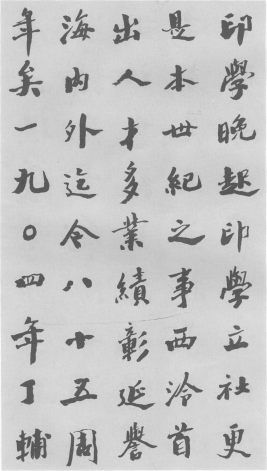 印學晚起印學立社更
是本世紀之事西泠首
出人才多業績彰延譽
海內外迄今八十五周
年矣一九〇四年丁輔